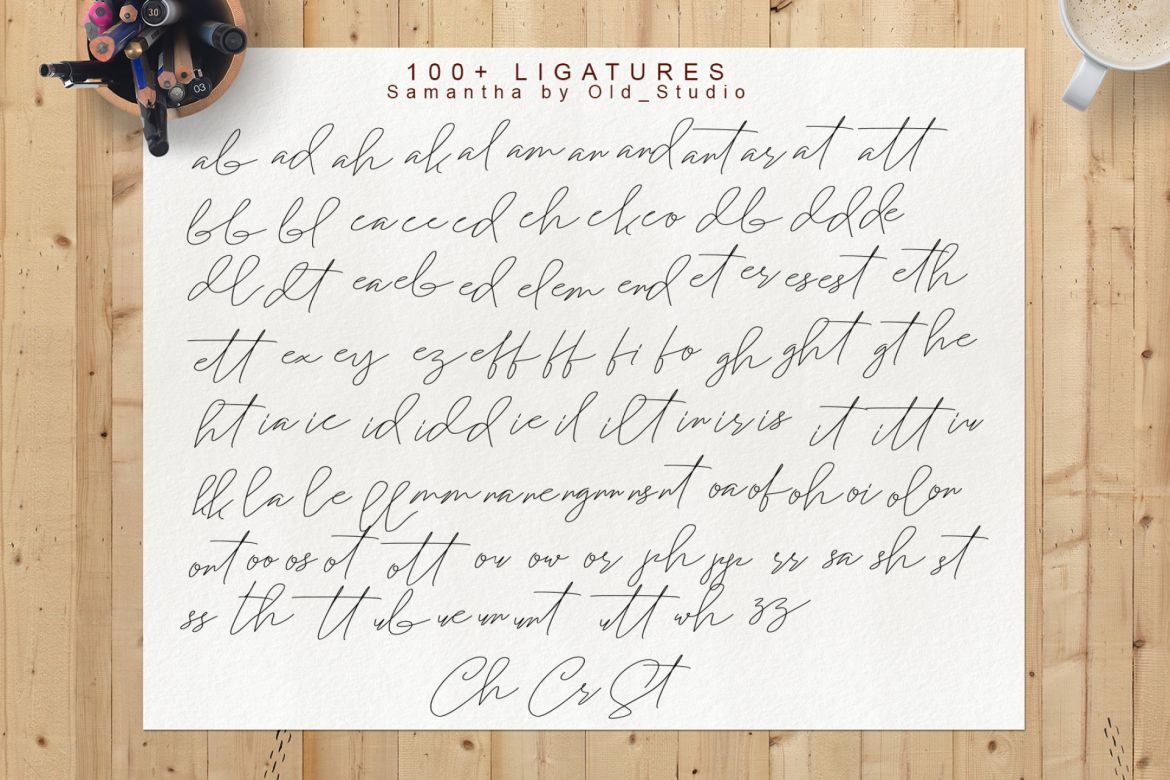 3.0
03
100+ LIGATURES
Samantha by Old_Studio
ab ad ah ak al am an and ant ar at att
bb bl ca ce cd ch ck co db dd de
dl dt ea eb ed el em end et er es est eth
ett ex ey ez eff ff fi fo gh ght gt he
ht ia ic id idd ie il ilt in ir is it itt iu
lk la le ll mm na ne ng nn ns nt oa of oh oi ol on
ont oo os ot ott ou ow or ph pp rr sa sh st
ss th tt ub ue un unt utt wh zz
Ch Cr St